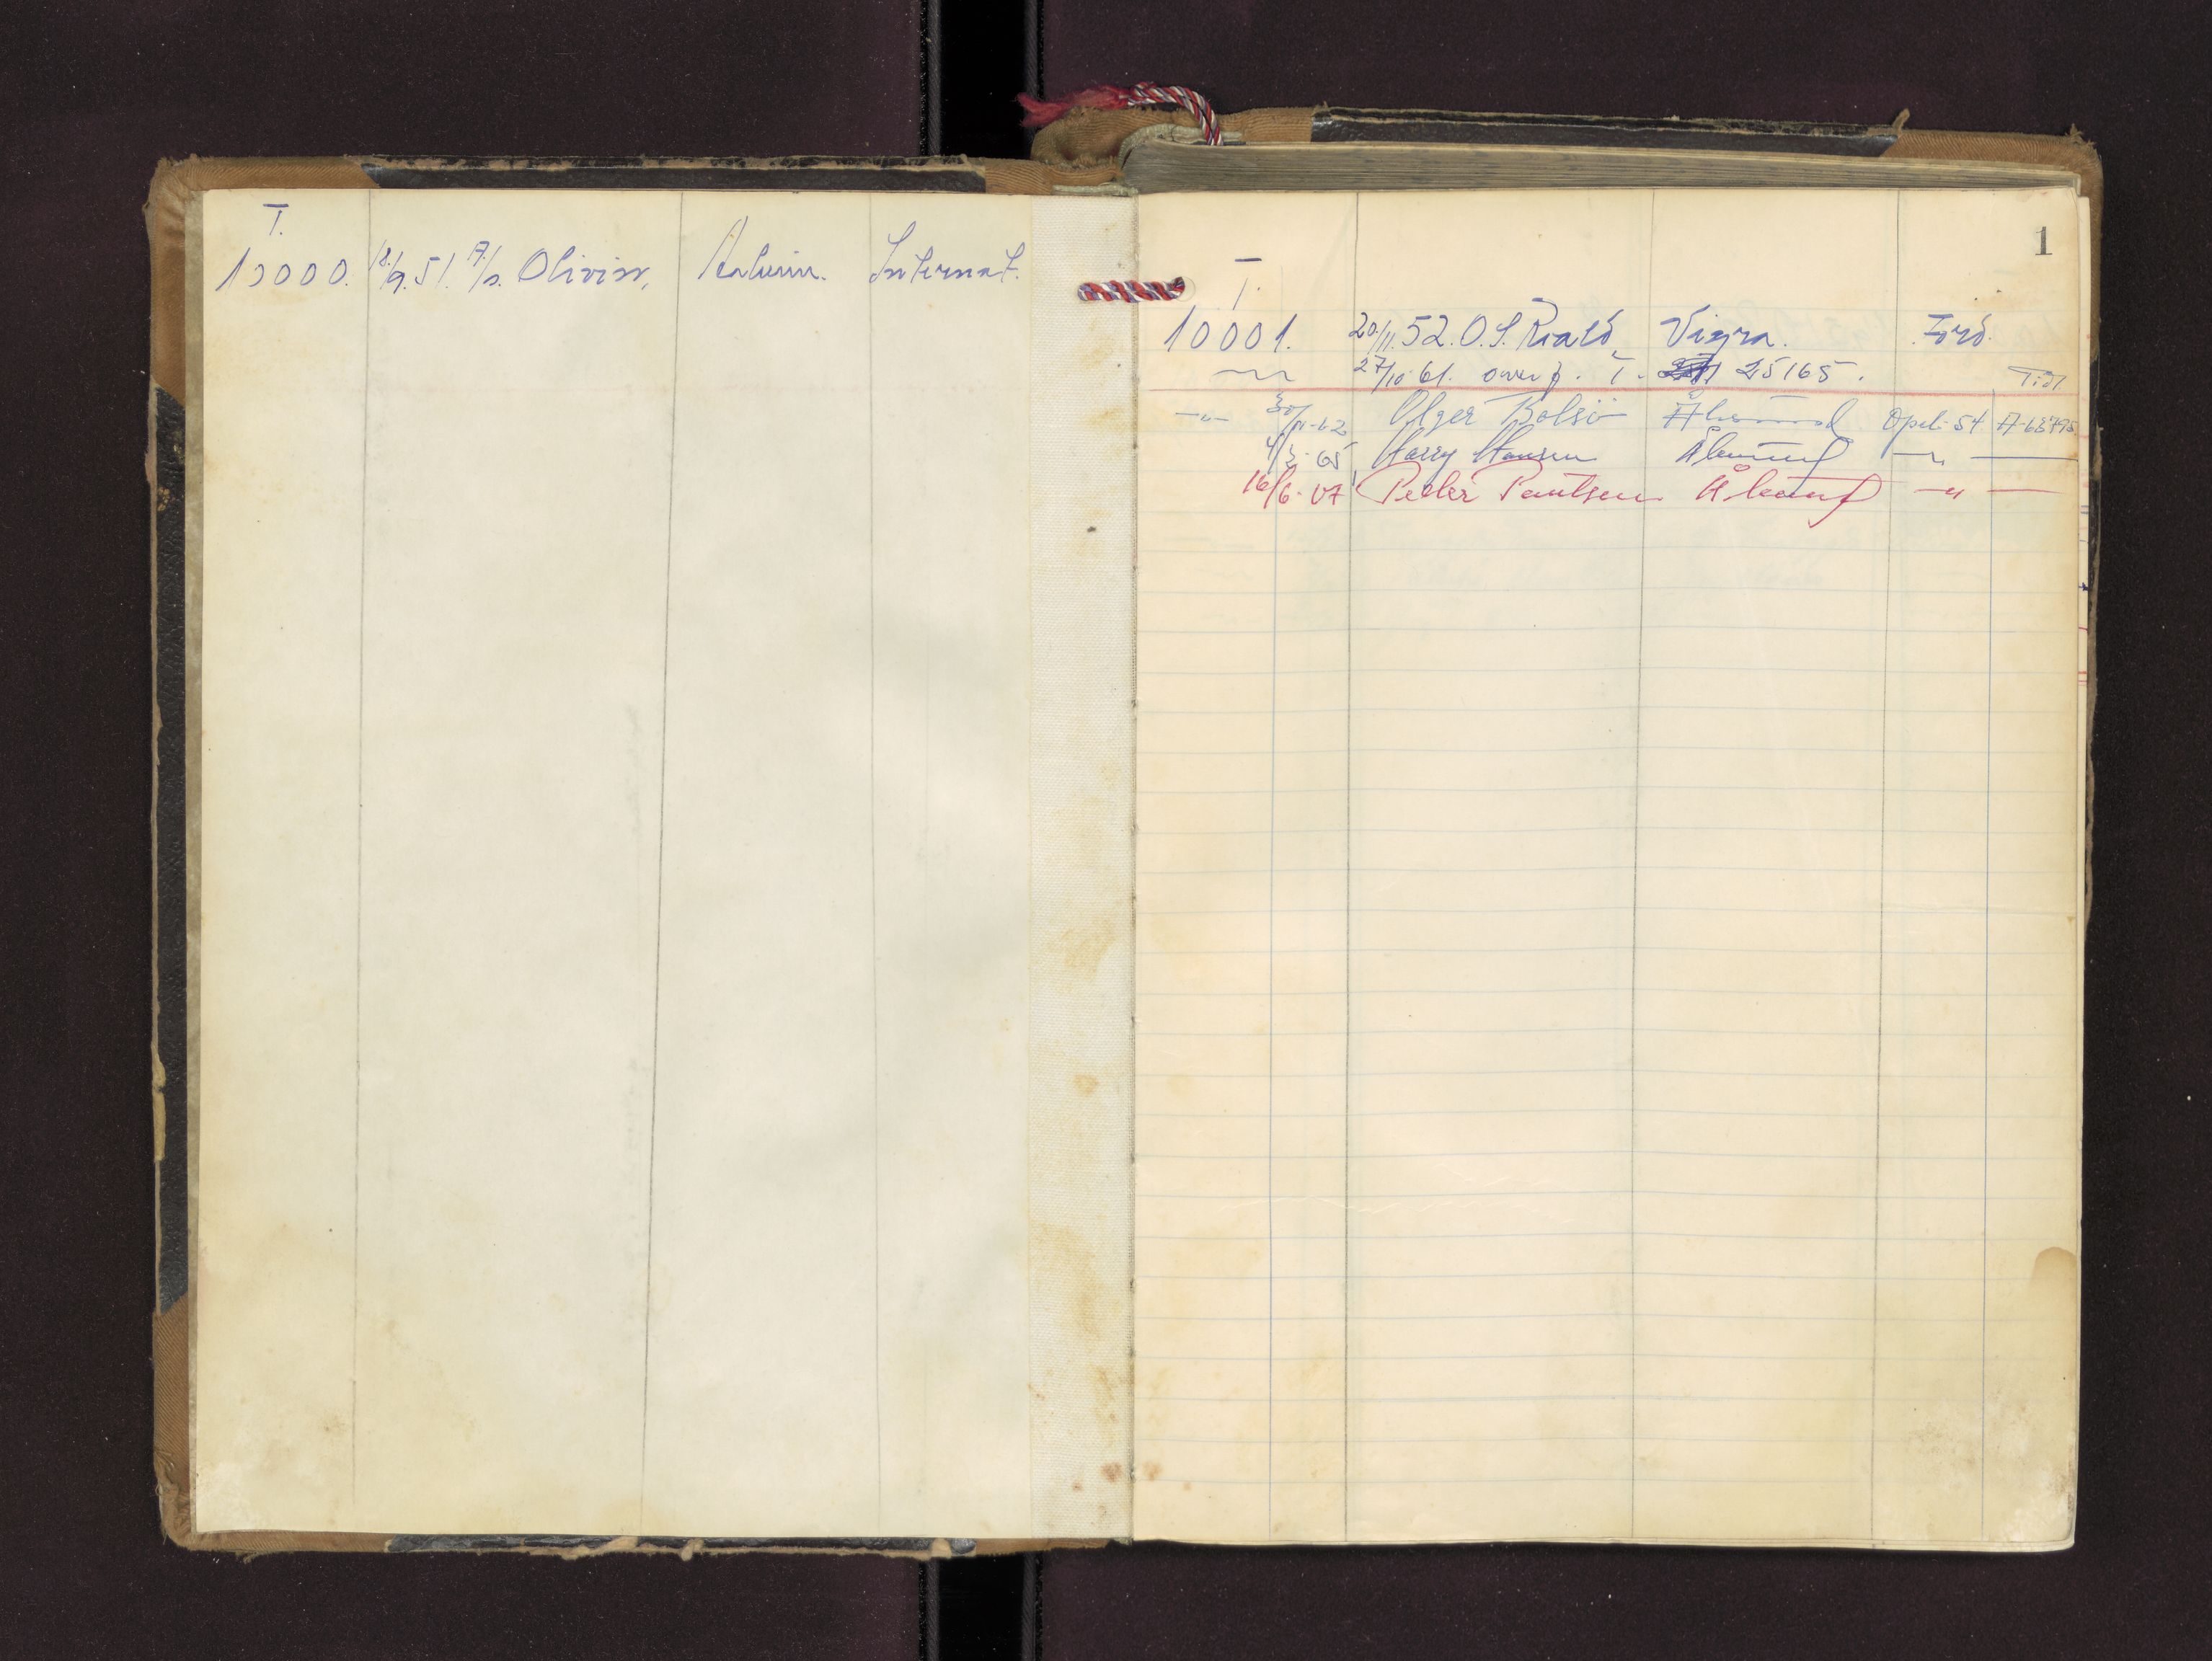 T.
10000. 18/9.51. A/s. Olivin, Aaheim. Internat.
1
T.
10001. 20/11.52. O. S. Roald, Vigra. Ford.
27/10-61. overf. T. 25165.
30/11-62 Olger Bolsö Ålesund Opel-54 A-63495
4/3-65 Harry Hansen Ålesund — " —
16/6-67 Petter Paulsen Ålesund — " —